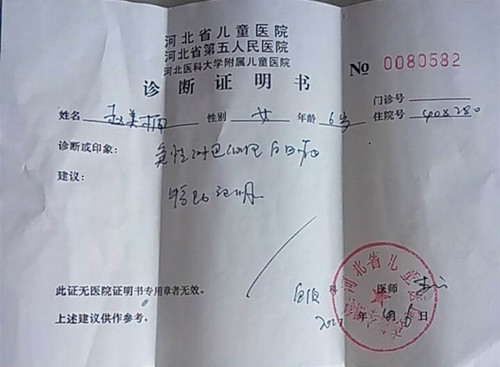 河北省儿童医院
河北省第五人民医院
河北医科大学附属儿童医院
诊断证明书
No 0080582
门诊号
姓名 赵美 性别 女 年龄 6岁 住院号 408280
诊断或印象： 急性淋巴细胞白血病
建议：
特此证明
此证无医院证明书专用章者无效。
医师
上述建议供作参考。
年 月 日
河北省儿